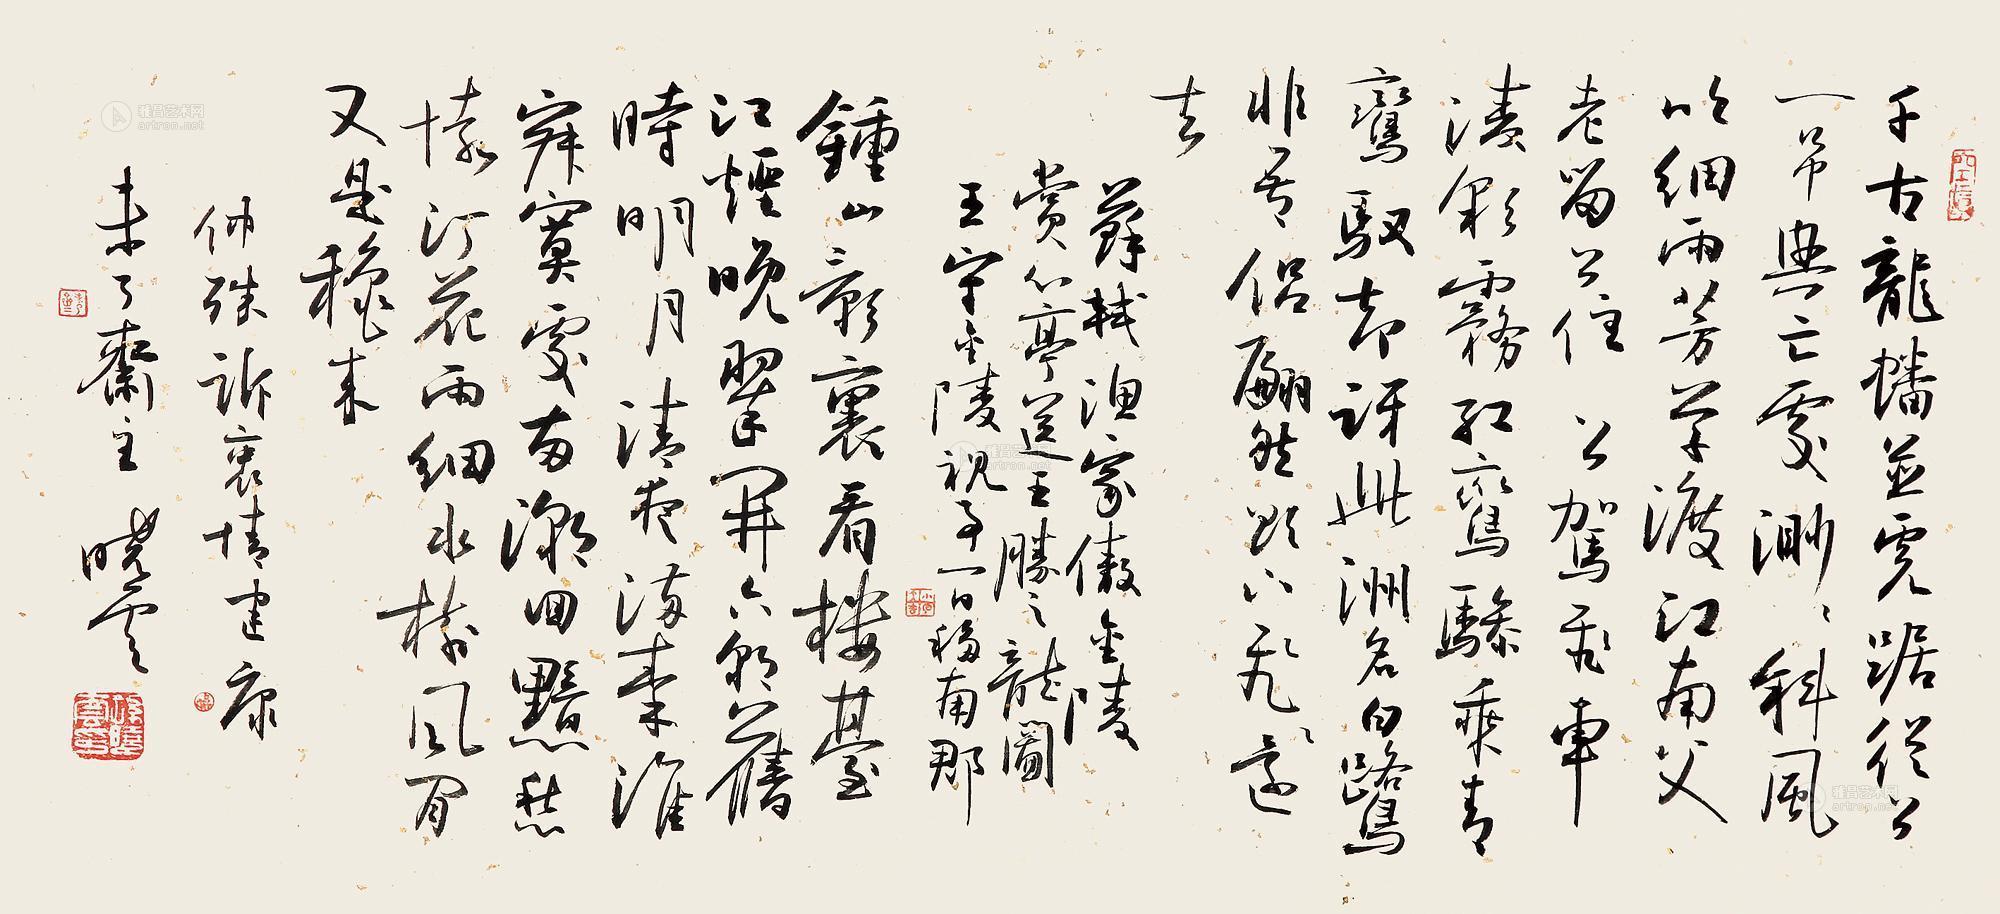 千古龍蟠並虎踞從公
一吊興亡處渺渺斜風
吹細雨芳草渡江南父
老留公住 公駕飛車
凌彩霧紅鸞驂乘青
鸞馭却訝此洲名白鷺
非吾侶翩然欲下飛還
去
蘇軾漁家傲金陵
賞心亭送王勝之龍圖
王守金陵視事一日移南郡
鍾山影裏看樓臺
江煙晚翠開六朝舊
時明月清夜滿秦淮
寂寞處兩潮回黯愁
懷汀花雨細水樹風閒
又是穐來
仲殊訴衷情建康
未了齋主 曉雲
雅昌艺术网
artron.net
雅昌艺术网
artron.net
雅昌艺术网
artron.net